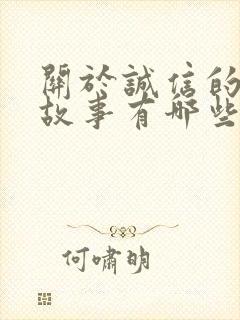 關於誠信的
故事有哪些
何嘯明